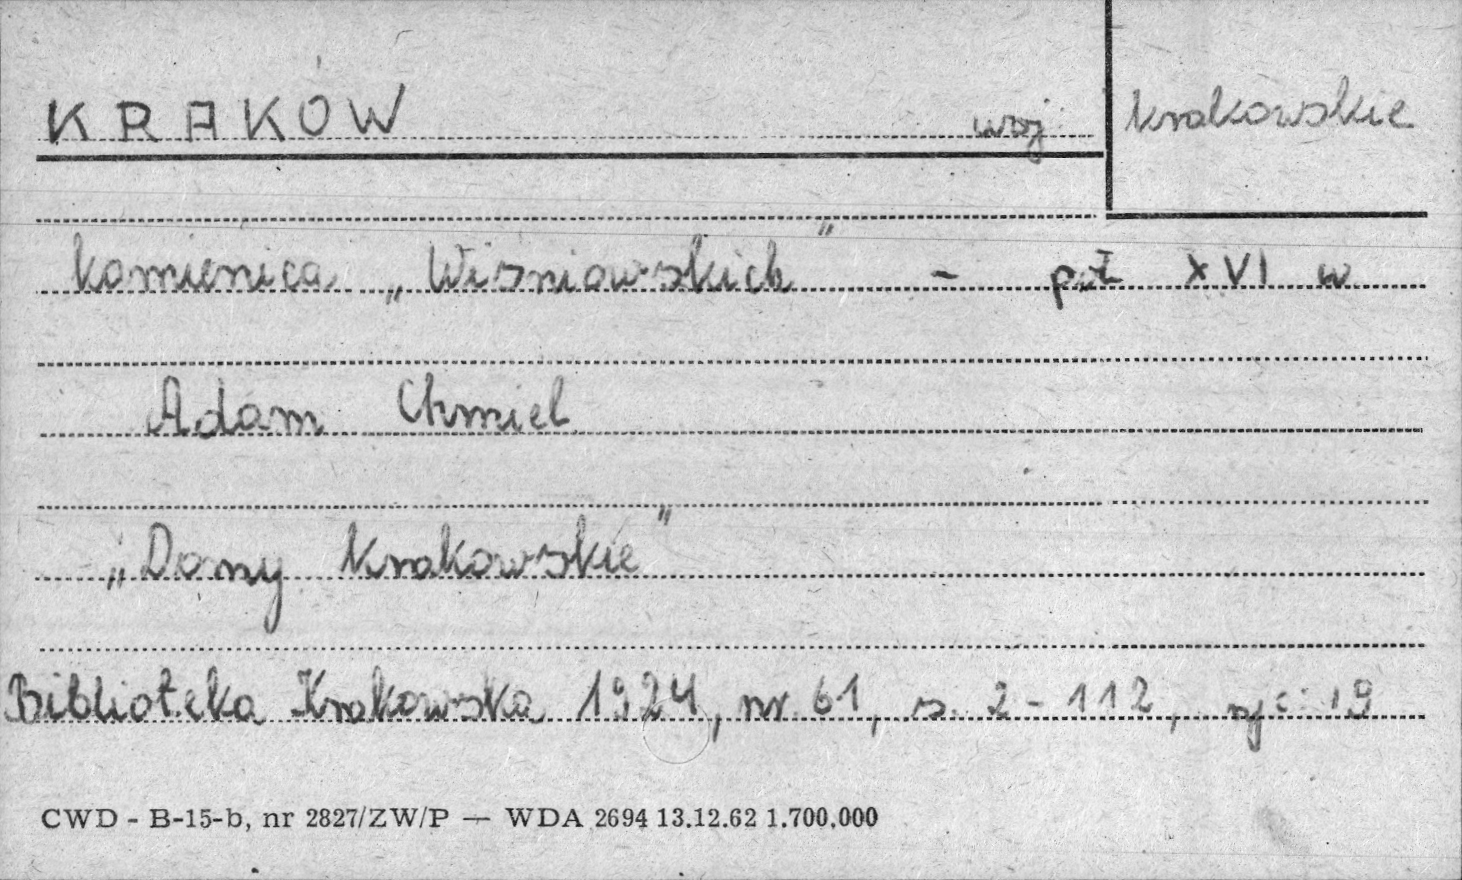 KRAKÓW woj. krakowskie
kamienica „Wiśniowskich" - poł XVI w
Adam Chmiel
„Domy krakowskie"
Biblioteka Krakowska 1924, nr 61, s. 2-112, ryc. 19
CWD - B-15-b, nr 2827/ZW/P — WDA 2694 13.12.62 1.700.000